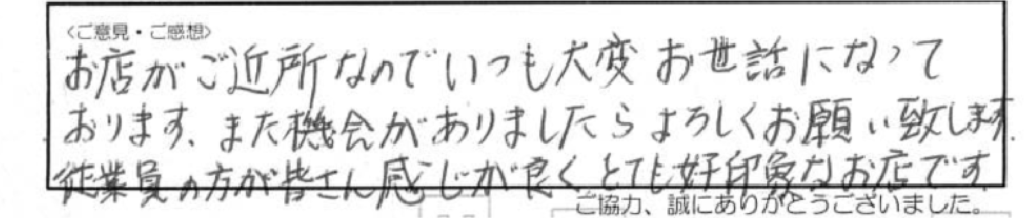 〈ご意見・ご感想〉
お店がご近所なのでいつも大変お世話になって
おります。また機会がありましたらよろしくお願い致します。
従業員の方が皆さん感じが良くとても好印象なお店です
ご協力、誠にありがとうございました。